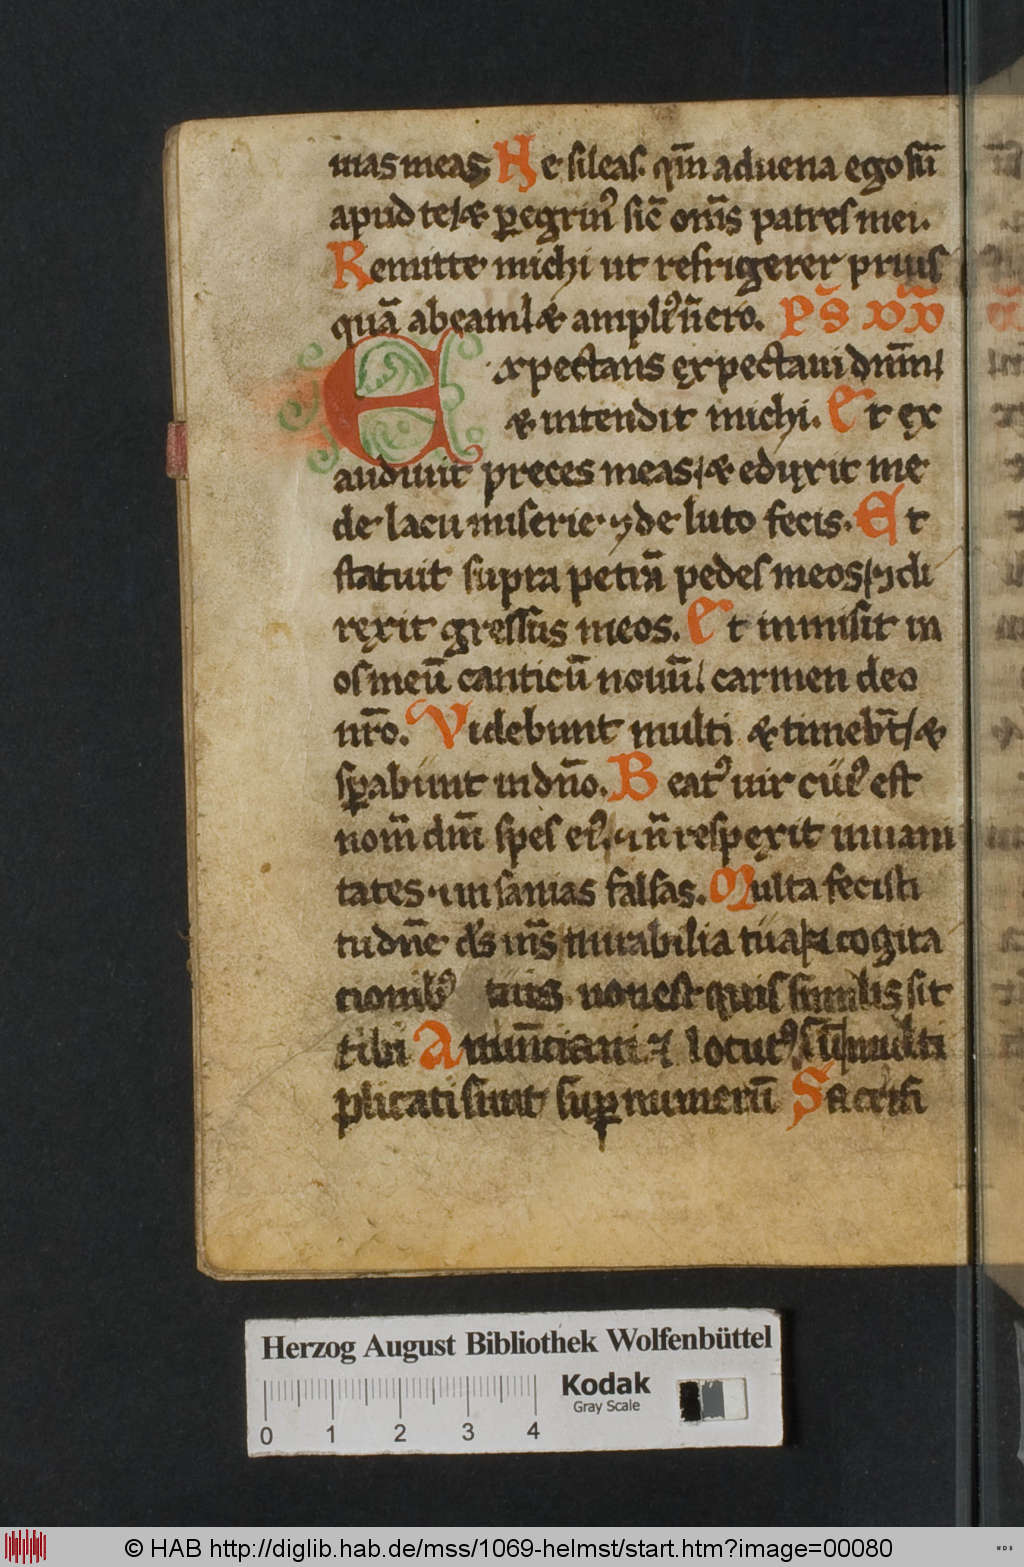 mas meas. Ne sileas. qm̄ aduena ego sū
apud te / & p̱egrinꝰ sic̄ om̄s patres mei.
Remitte michi ut refrigerer prius
quā abeam / & ampliꝰ n̄ ero. Ps̄
Expectans expectaui dn̄m /
& intendit michi. Et ex
audiuit preces meas / & eduxit me
de lacu miserie ⁊ de luto fecis. Et
statuit supra petrā pedes meos / ⁊ di
rexit gressus meos. Et inmisit in
os meū canticū nouū / carmen deo
nr̄o. Videbunt multi & timeb̄t / &
sp̱abunt in dn̄o. Beatꝰ uir cuiꝰ est
nom̄ dn̄i spes eiꝰ. ⁊ n̄ respexit in uani
tates ⁊ insanias falsas. Multa fecisti
tu dn̄e ds̄ ms̄ mirabilia tua / ⁊ cogita
tionibꝰ tuis non est quis similis sit
tibi Annūciaui ⁊ locutꝰ sū / multi
plicati sunt sup̱ numerū Sacrifi
Herzog August Bibliothek Wolfenbüttel
Kodak
Gray Scale
0 1 2 3 4
© HAB http://diglib.hab.de/mss/1069-helmst/start.htm?image=00080